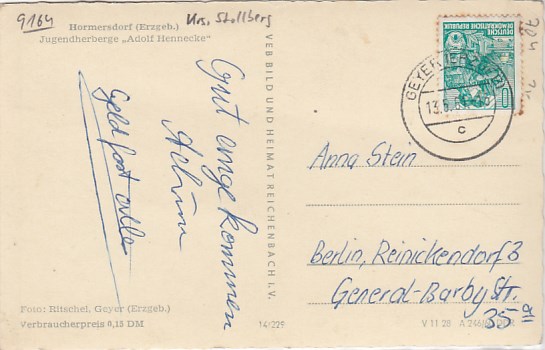 9164
Krs. Stollberg
Hormersdorf (Erzgeb.)
Jugendherberge „Adolf Hennecke"
Gut angekommen
Achim
Geld fast alle
Foto: Ritschel, Geyer (Erzgeb.)
Verbraucherpreis 0,15 DM
VEB BILD UND HEIMAT REICHENBACH I. V.
14/229
DEUTSCHE
DEMOKRATISCHE REPUBLIK
10
GEYER
13.8.
c
Anna Stein
Berlin, Reinickendorf 3
General-Barby Str.
35 a
V 11 28 A 246/ DDR